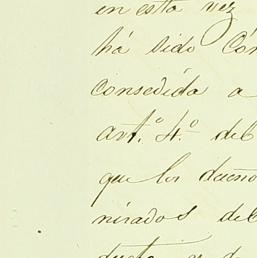 en esta vez
há sido Cón
consedída a
art.º 4.º del
que los dueño
nirados del